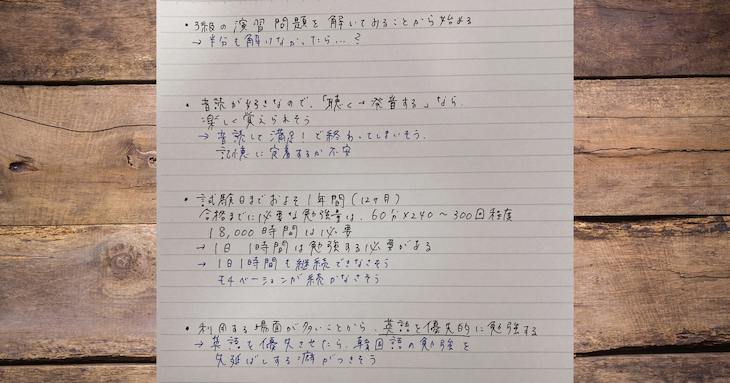 ・3級の演習問題を解いてみることから始める
→ 半分も解けなかったら…?
・音読が好きなので、「聴く→発音する」なら
楽しく覚えられそう
→ 音読して満足!で終わってしまいそう.
記憶に定着するか不安
・試験日までおよそ1年間(12ヶ月)
合格までに必要な勉強量は、60分×240〜300回程度
18,000時間は必要
→ 1日 1時間は勉強する必要がある
→ 1日1時間も継続できなさそう
モチベーションが続かなさそう
・利用する場面が多いことから、英語を優先的に勉強する
→ 英語を優先させたら、韓国語の勉強を
先延ばしする癖がつきそう